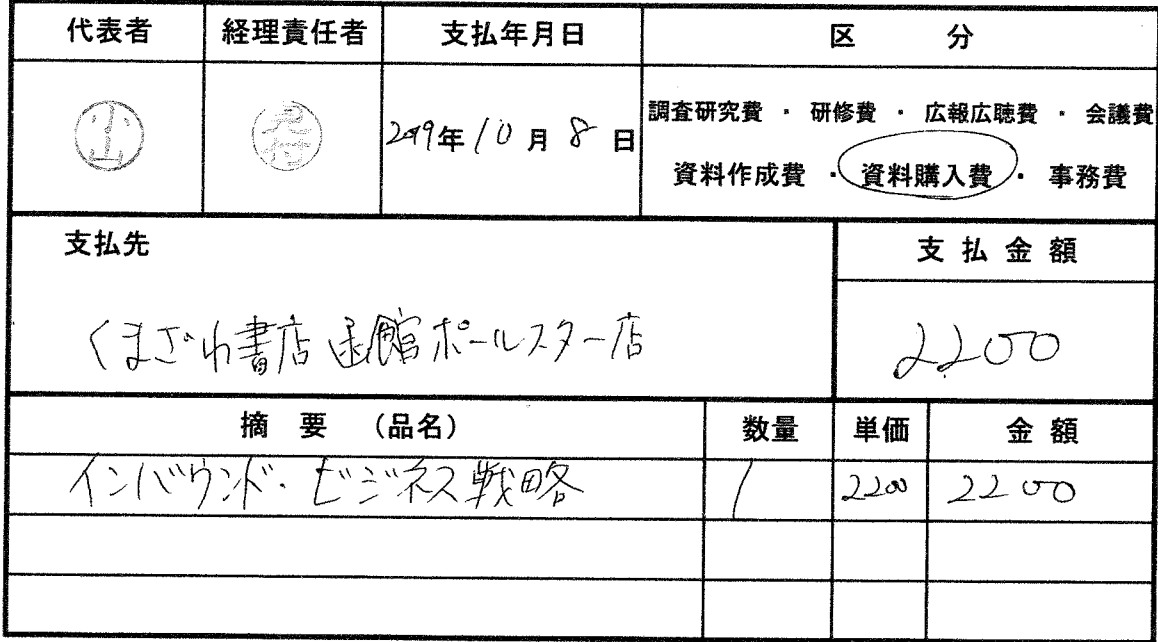 代表者 経理責任者 支払年月日 区分
小山
2019年10月8日
調査研究費 ・ 研修費 ・ 広報広聴費 ・ 会議費
資料作成費 ・ 資料購入費 ・ 事務費
支払先 支払金額
くまざわ書店函館ポールスター店 2200
摘要 (品名) 数量 単価 金額
インバウンド・ビジネス戦略 1 2200 2200